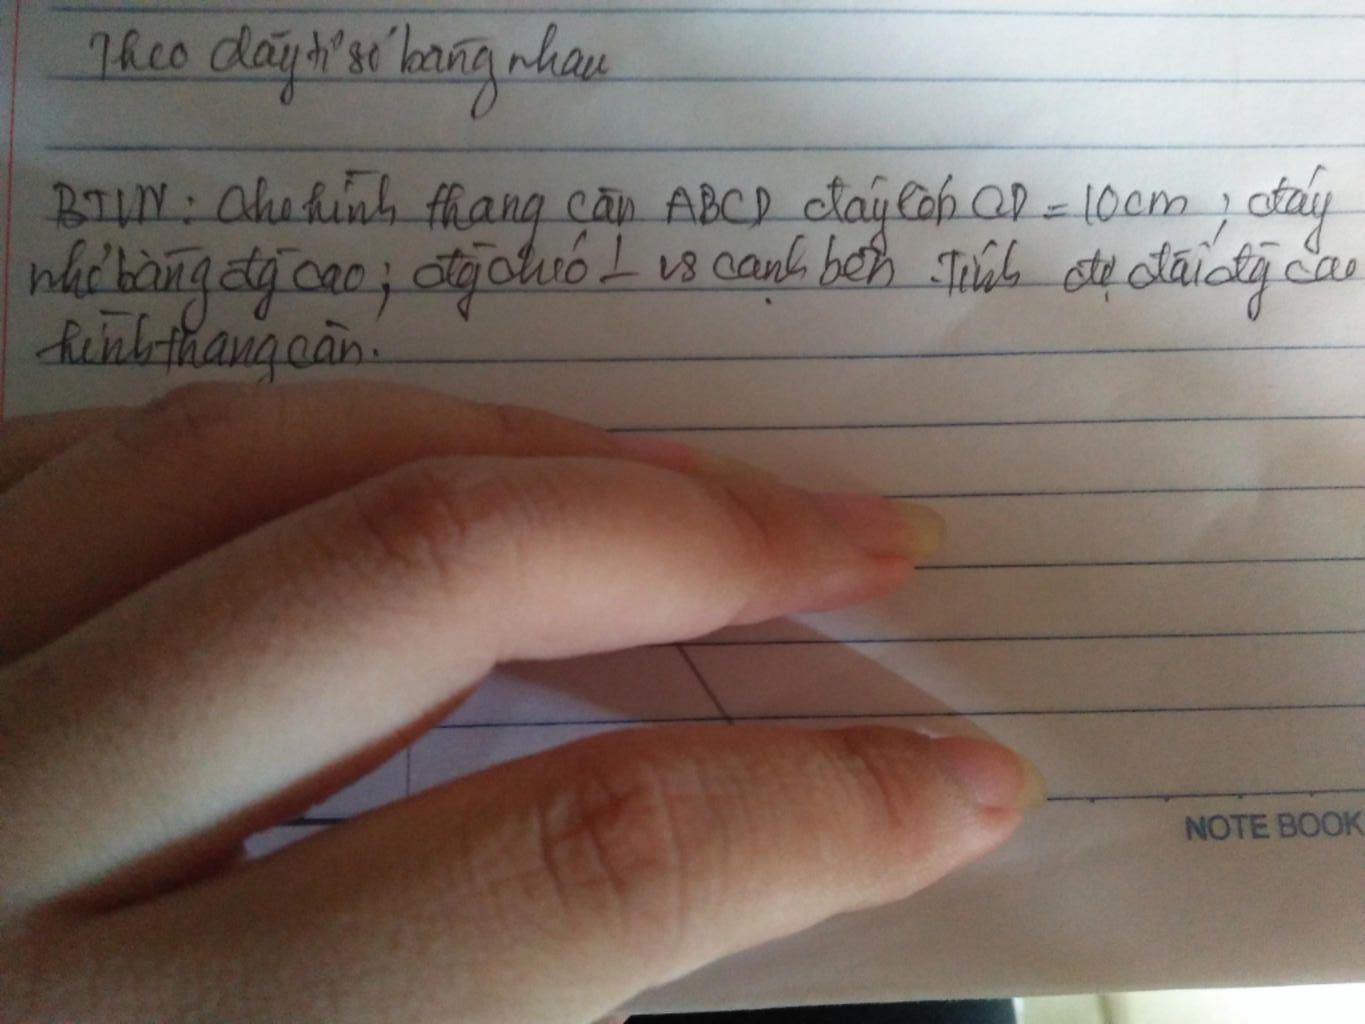 Theo dãy tỉ số bằng nhau
BTVN: Cho hình thang cân ABCD đáy lớn CD = 10cm; đáy
nhỏ bằng đg cao; đg chéo ⊥ vs cạnh bên. Tính độ dài đg cao
hình thang cân.
NOTE BOOK